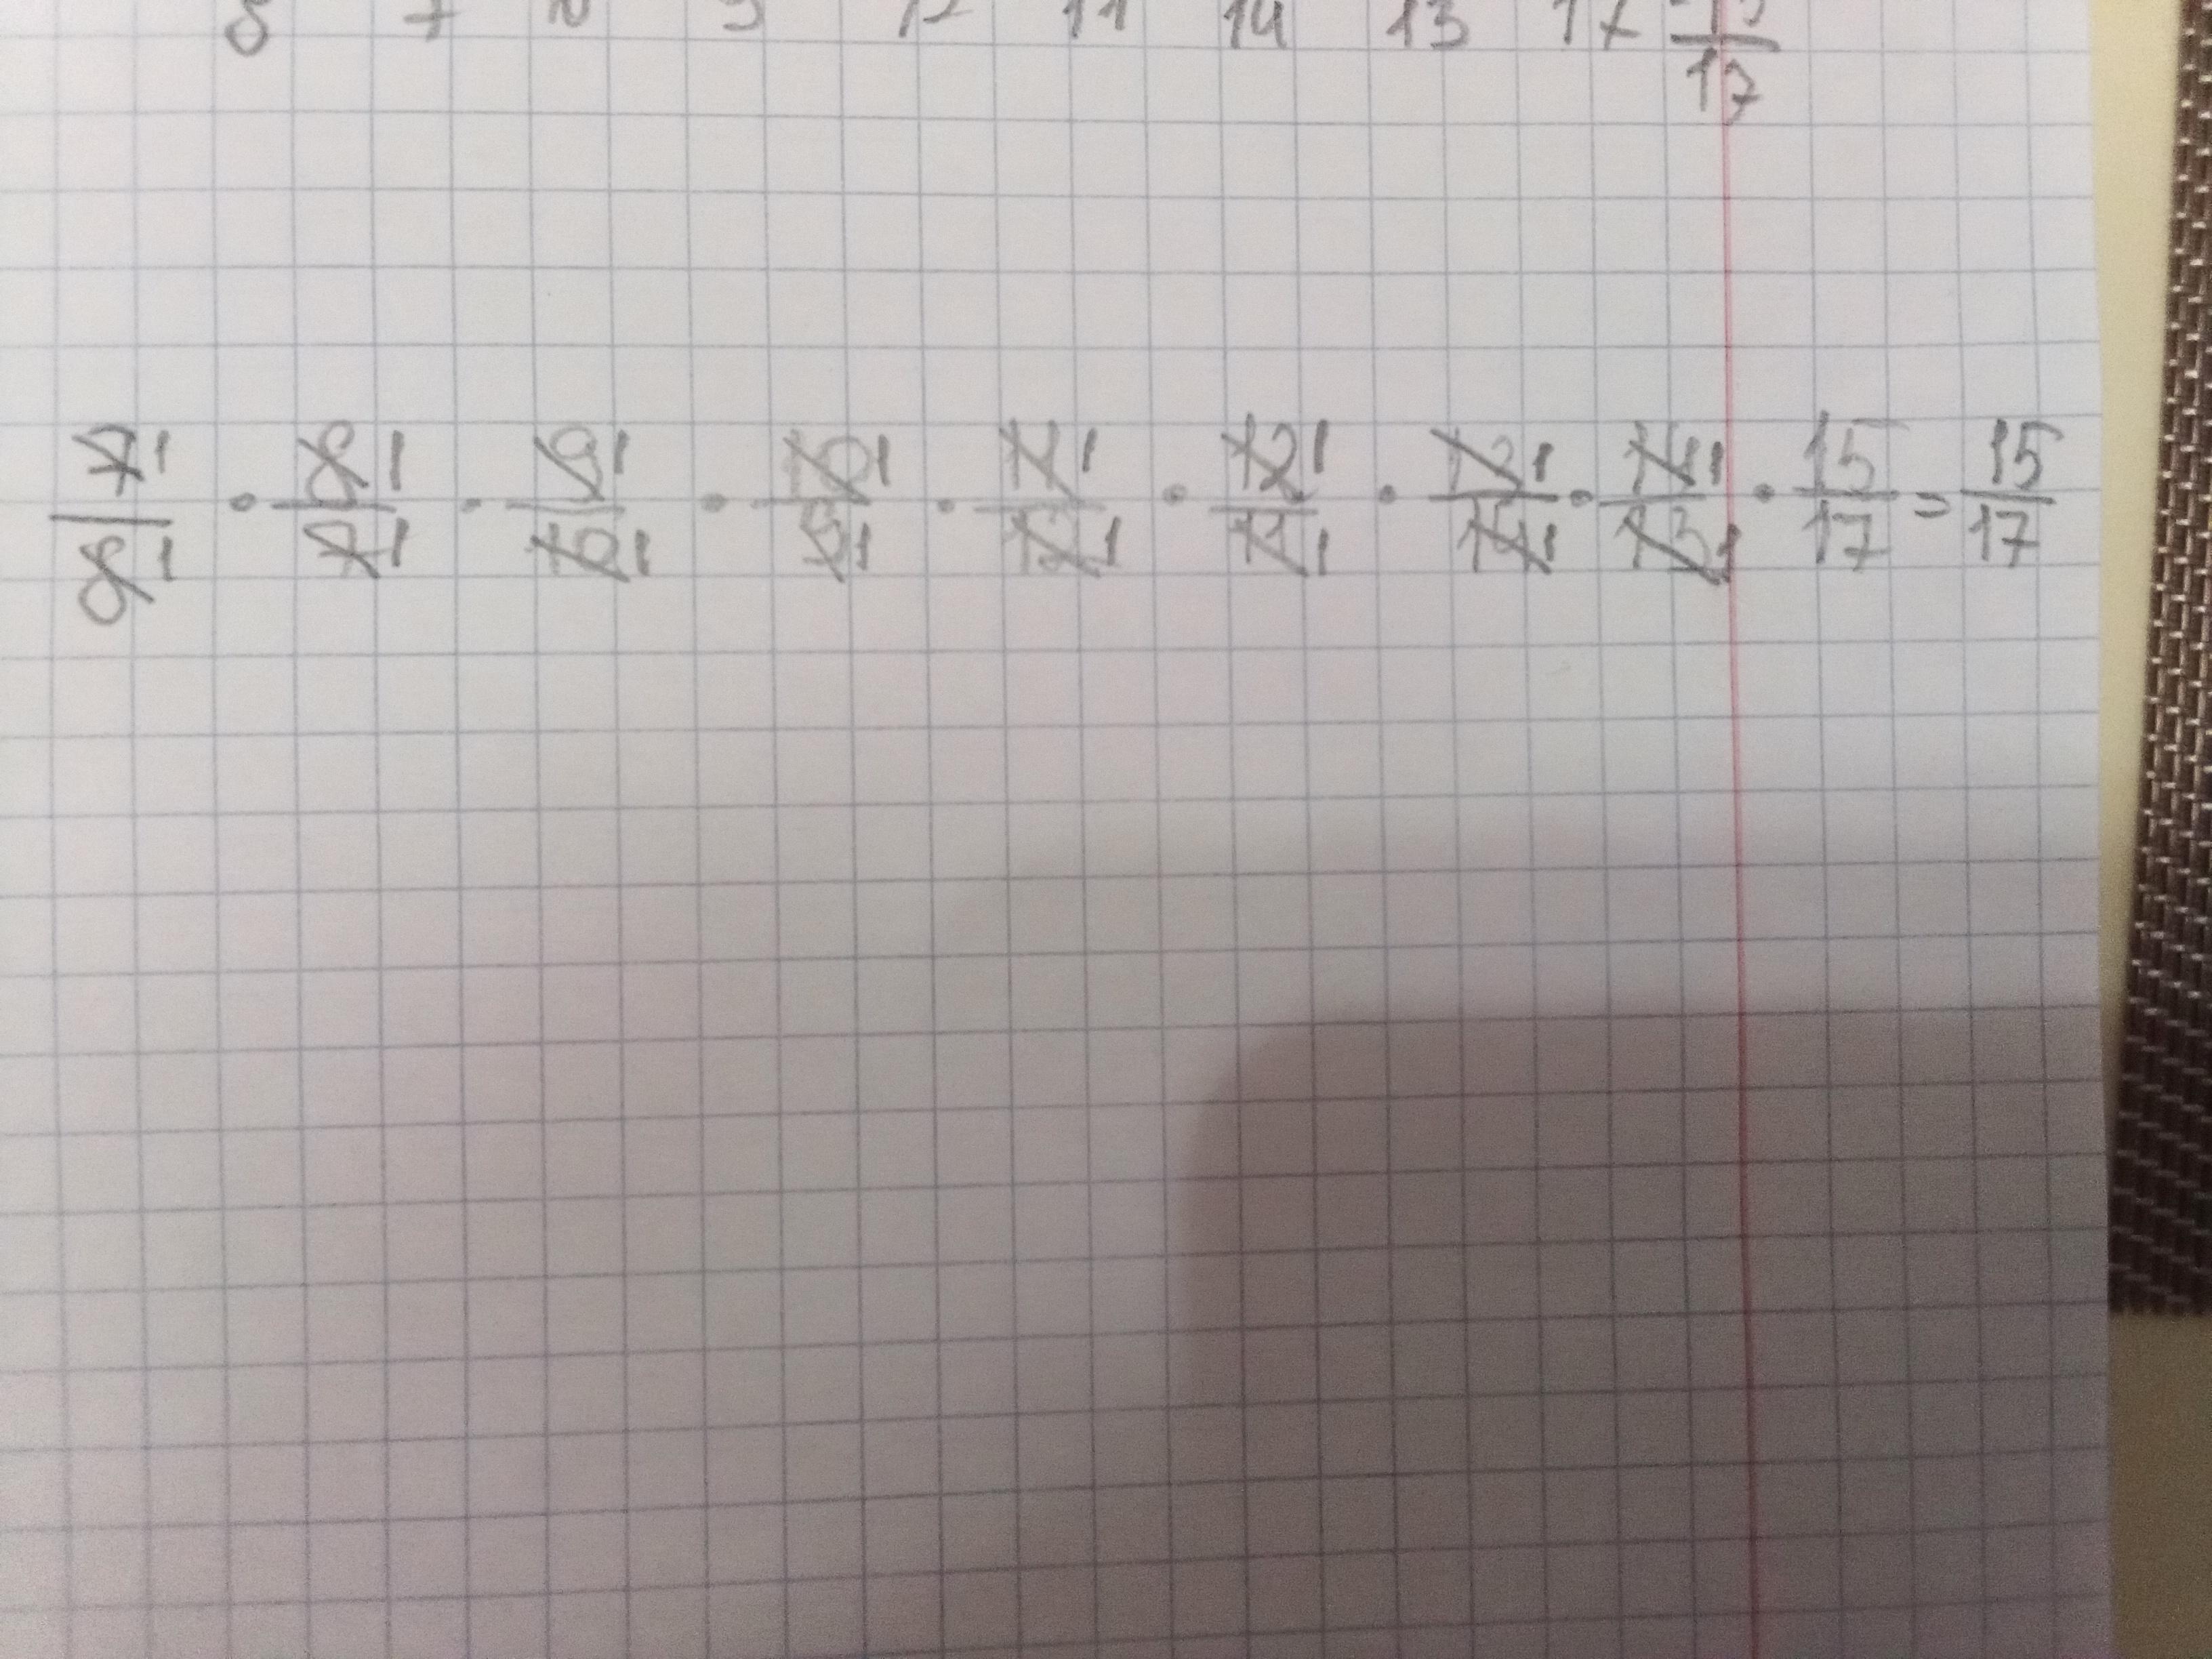 8 7 10 9 12 11 14 13 17 15/17
7 1/8 1 · 8 1/7 1 · 9 1/10 1 · 10 1/9 1 · 11 1/12 1 · 12 1/11 1 · 13 1/14 1 · 14 1/13 1 · 15/17 = 15/17